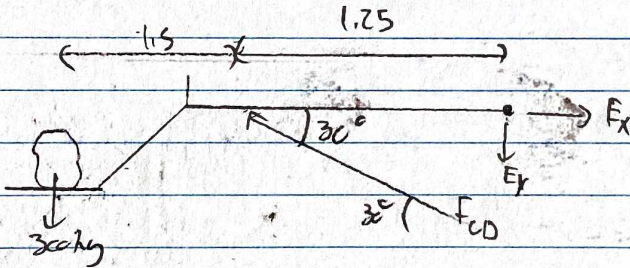 1.5
1.25
30°
Ex
Ey
30°
FCD
300kg